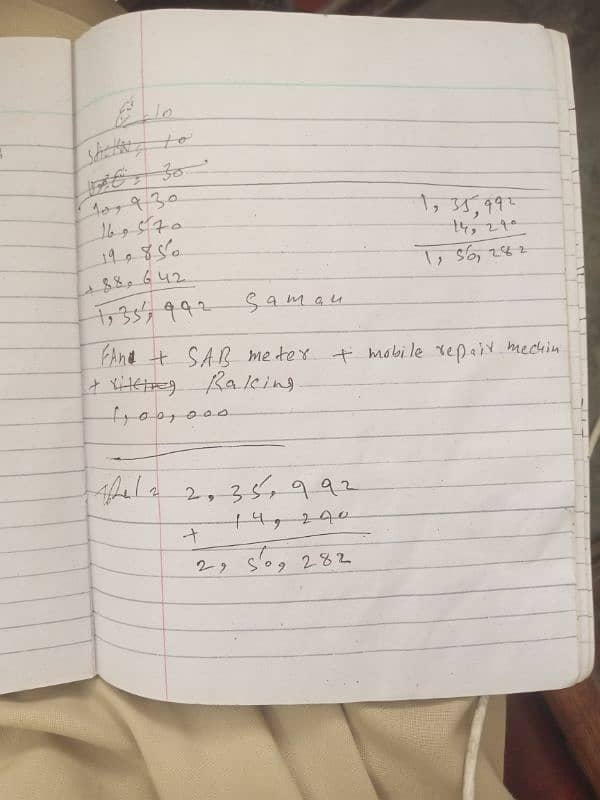 = 10
= 10
= 30
10,930
16,570
19,850
+ 88,642
1,35,992 Saman
1,35,992
14,290
1,50,282
FAN + SAB meter + mobile repair mechin
+ Raking
1,00,000
2,35,992
+ 14,290
2,50,282